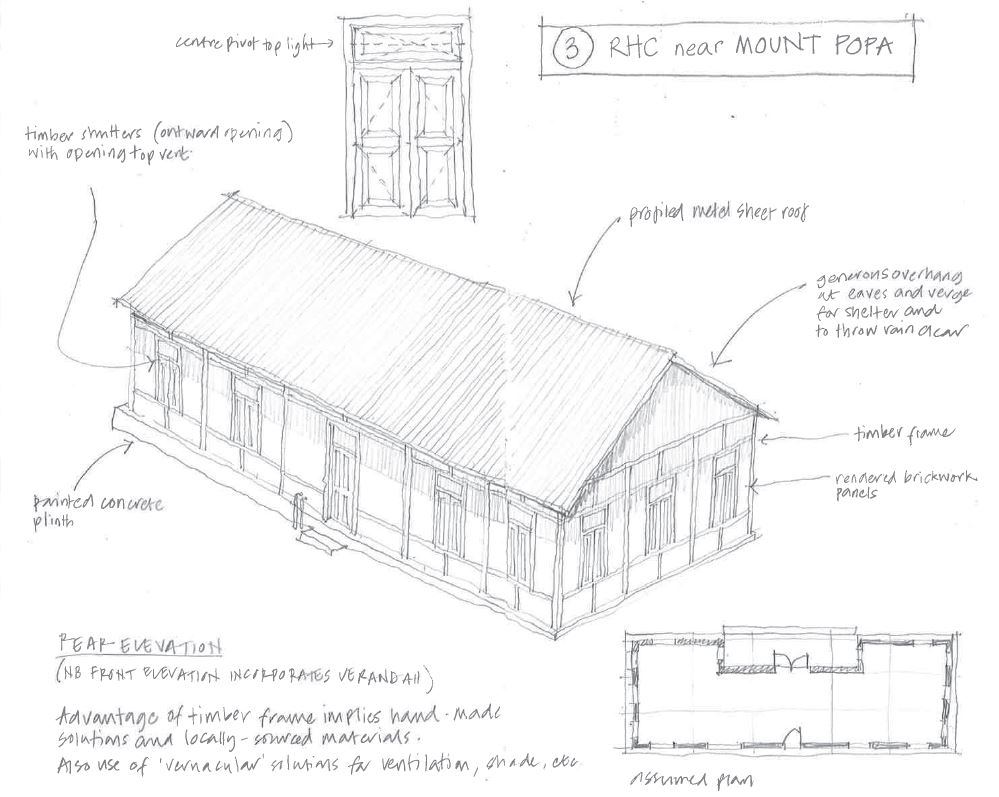 centre pivot top light
3 RHC near MOUNT POPA
timber shutters (outward opening)
with opening top vent.
profiled metal sheet roof
generous overhang
at eaves and verge
for shelter and
to throw rain clear
timber frame
rendered brickwork
panels
painted concrete
plinth
REAR ELEVATION
(NB FRONT ELEVATION INCORPORATES VERANDAH)
Advantage of timber frame implies hand-made
solutions and locally-sourced materials.
Also use of 'vernacular' solutions for ventilation, shade, etc
assumed plan